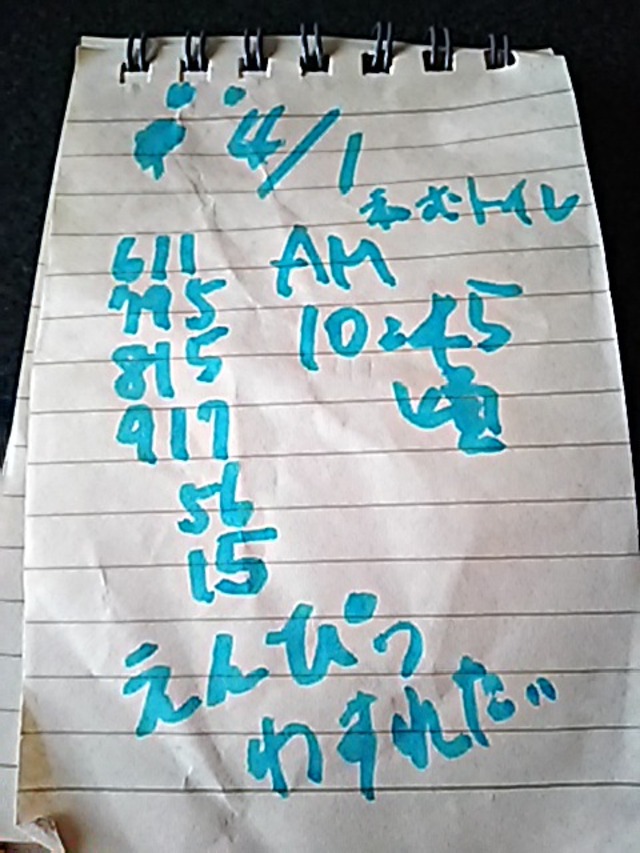 4/1
トイレ
AM
10:45
611
715
815
917
56
15
えんぴつ
わすれた…